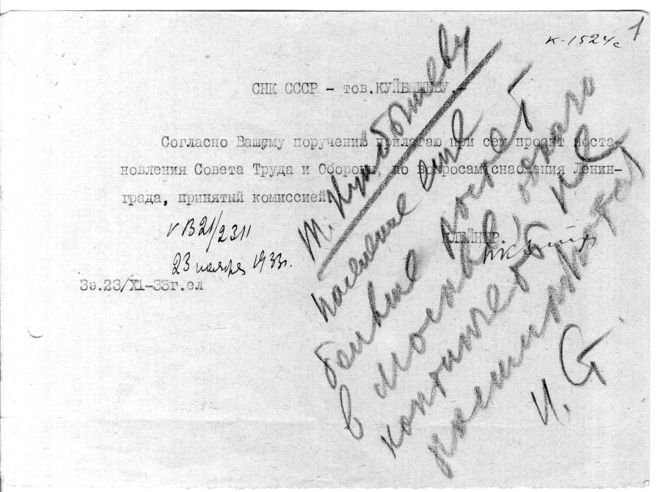 К-1524с
1
СНК СССР - тов.КУЙБЫШЕВУ.-
Согласно Вашему поручению прилагаю при сем проект поста-
новления Совета Труда и Обороны, по вопросам снабжения Ленин-
града, принятый комиссией.
КЛЕЙНЕР
В21/2311
23 ноября 1933г.
Зе.23/XI-33г.ел
Т. Куйбышеву
Население еще
больше растет
в Москве, однако
не
И. Ст.